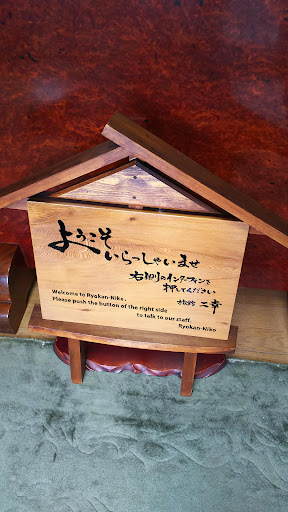 ようこそ
いらっしゃいませ
右側のインターフォンを
押してください
旅館 二幸
Welcome to Ryokan-Niko.
Please push the button of the right side
to talk to our staff.
Ryokan-Niko